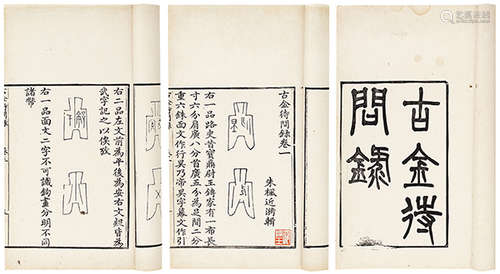 古金待
問錄
古金待問錄卷一
朱楓近漪輯
右一品路史昔寶鼎尉王鑄家有一布長
寸六分肩廣八分首廣五分為足間二分
重六銖面文作行昊乃帝昊字幕文作引
右二品左文前為平後為安右文皆為
武字記之以俟攷
右一品面文二字不可識鉤畫分明不同
諸幣